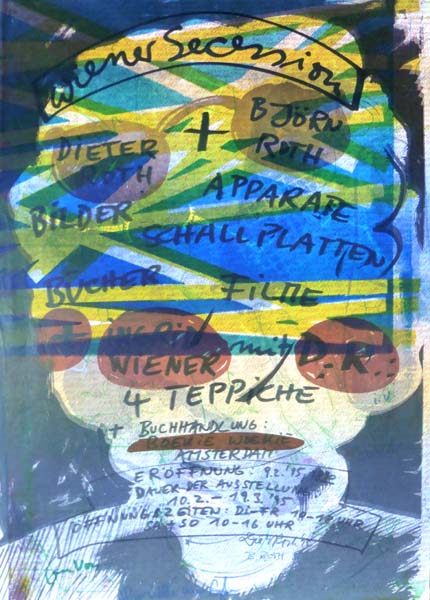 Wiener Secession
DIETER + BJÖRN
ROTH ROTH
BILDER APPARATE
SCHALLPLATTEN
BÜCHER FILME
+ INGRID
WIENER mit D.R.
4 TEPPICHE
+ BUCHHANDLUNG:
BOEKIE WOEKIE
AMSTERDAM
ERÖFFNUNG: 9.2.'95
DAUER DER AUSSTELLUNG
10.2. – 19.3.'95
ÖFFNUNGSZEITEN: DI-FR 10-18 UHR
SA + SO 10-16 UHR
B. ROTH